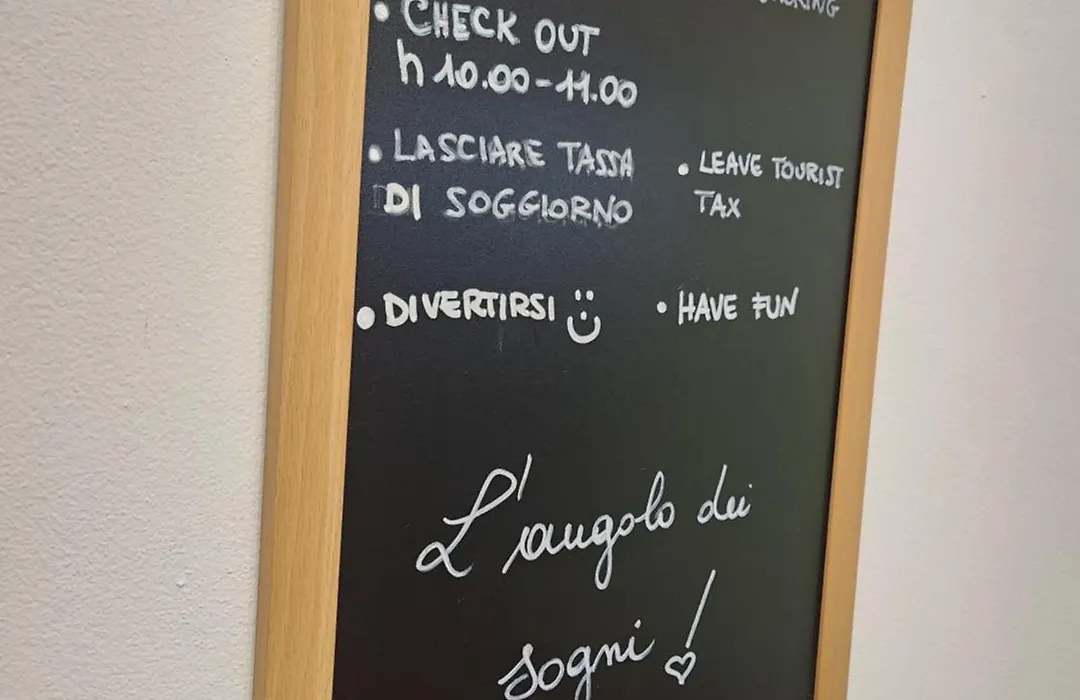 • CHECK OUT
h 10.00-11.00
• LASCIARE TASSA
DI SOGGIORNO
• LEAVE TOURIST
TAX
• DIVERTIRSI
• HAVE FUN
L'angolo dei
sogni!